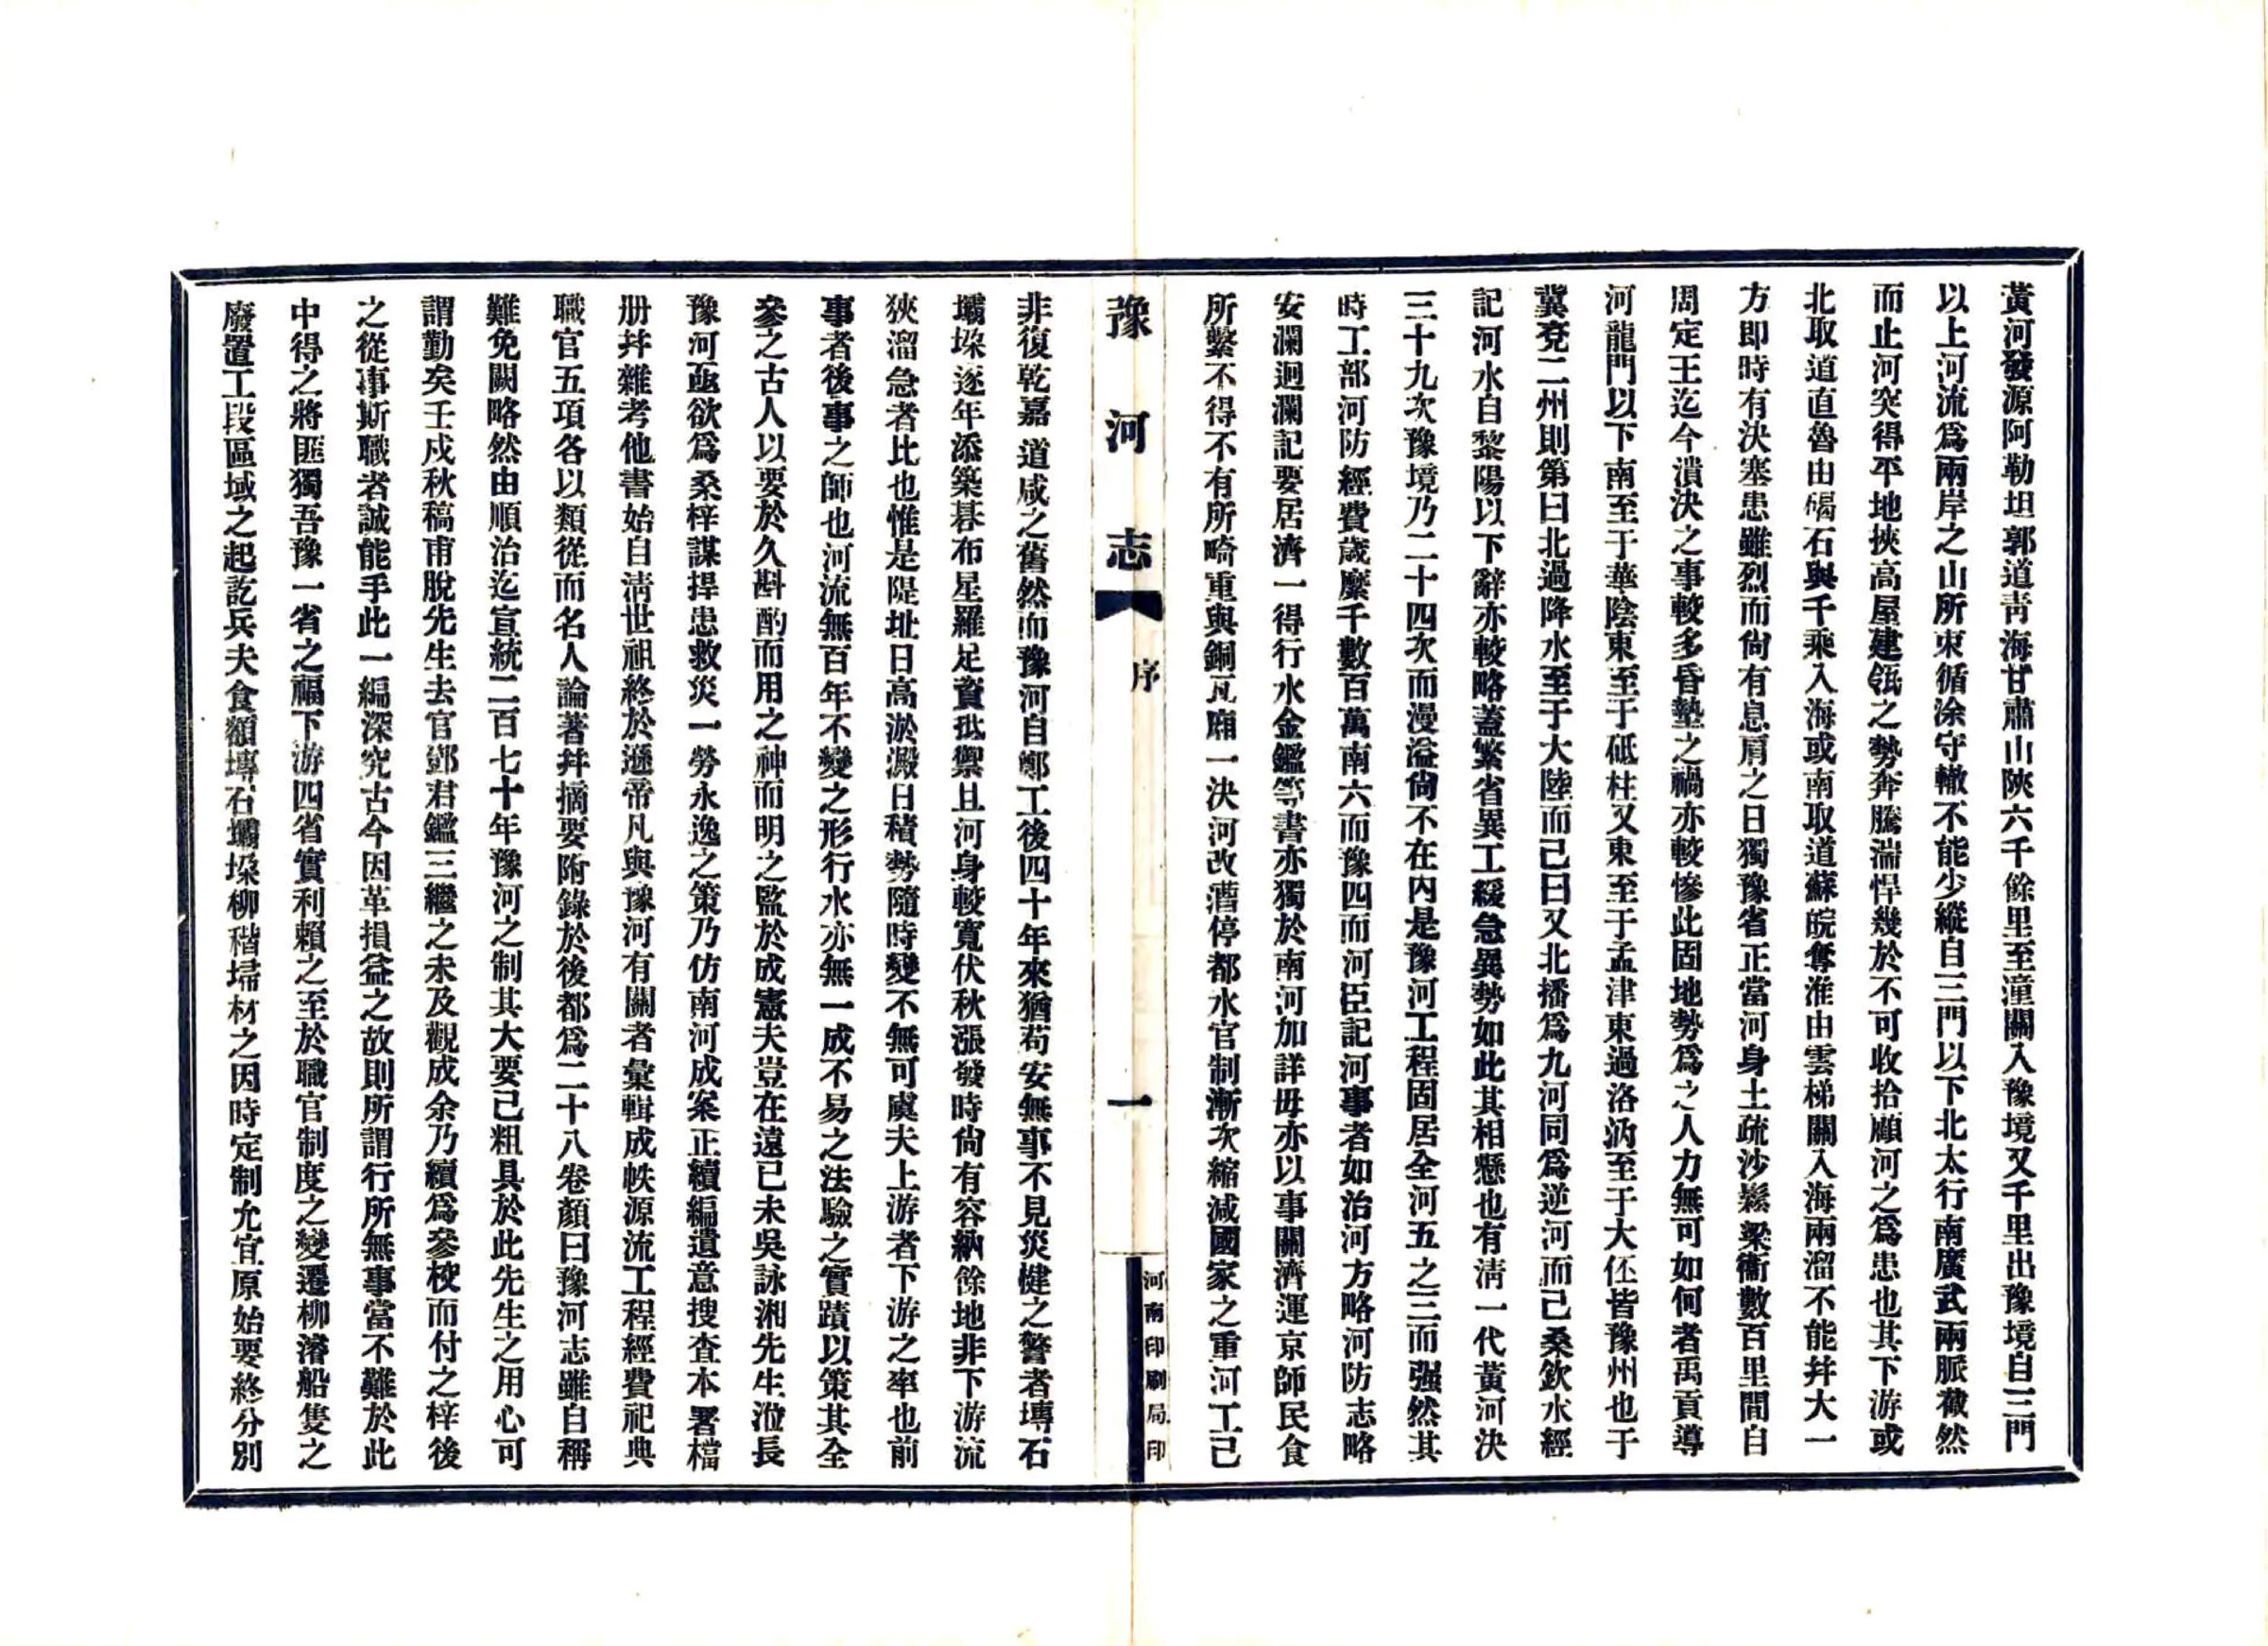 黃河發源阿勒坦郭道靑海甘肅山陝六千餘里至潼關入豫境又千里出豫境自三門
以上河流爲兩岸之山所束循涂守轍不能少縱自三門以下北太行南廣武兩脈截然
而止河突得平地挾高屋建瓴之勢奔騰湍悍幾於不可收拾顧河之爲患也其下游或
北取道直魯由碣石與千乘入海或南取道蘇皖奪淮由雲梯關入海兩溜不能幷大一
方卽時有決塞患雖烈而尙有息肩之日獨豫省正當河身土疏沙鬆梁衞數百里間自
周定王迄今潰決之事較多昏墊之禍亦較慘此固地勢爲之人力無可如何者禹貢導
河龍門以下南至于華陰東至于砥柱又東至于孟津東過洛汭至于大伾皆豫州也于
冀兗二州則第曰北過降水至于大陸而已曰又北播爲九河同爲逆河而已桑欽水經
記河水自黎陽以下辭亦較略蓋繁省異工緩急異勢如此其相懸也有淸一代黃河決
三十九次豫境乃二十四次而漫溢尙不在內是豫河工程固居全河五之三而强然其
時工部河防經費歲糜千數百萬南六而豫四而河臣記河事者如治河方略河防志略
安瀾迴瀾記要居濟一得行水金鑑等書亦獨於南河加詳毋亦以事關濟運京師民食
所繫不得不有所畸重與銅瓦廂一決河改漕停都水官制漸次縮減國家之重河工已
豫河志 序 一 河南印刷局印
非復乾嘉道咸之舊然而豫河自鄭工後四十年來猶苟安無事不見災楗之警者塼石
壩垛逐年添築碁布星羅足資抵禦且河身較寬伏秋漲發時尙有容納餘地非下游流
狹溜急者比也惟是隄址日高淤澱日積勢隨時變不無可虞夫上游者下游之率也前
事者後事之師也河流無百年不變之形行水亦無一成不易之法驗之實蹟以策其全
參之古人以要於久斟酌而用之神而明之監於成憲夫豈在遠已未吳詠湘先生涖長
豫河亟欲爲桑梓謀捍患救災一勞永逸之策乃仿南河成案正續編遺意搜查本署檔
册幷雜考他書始自淸世祖終於遜帝凡與豫河有關者彙輯成帙源流工程經費祀典
職官五項各以類從而名人論著幷摘要附錄於後都爲二十八卷顏曰豫河志雖自稱
難免闕略然由順治迄宣統二百七十年豫河之制其大要已粗具於此先生之用心可
謂勤矣壬戌秋稿甫脫先生去官鄧君鑑三繼之未及觀成余乃續爲參校而付之梓後
之從事斯職者誠能手此一編深究古今因革損益之故則所謂行所無事當不難於此
中得之將匪獨吾豫一省之福下游四省實利賴之至於職官制度之變遷柳濬船隻之
廢置工段區域之起訖兵夫食額塼石壩垛柳稭埽材之因時定制允宜原始要終分別